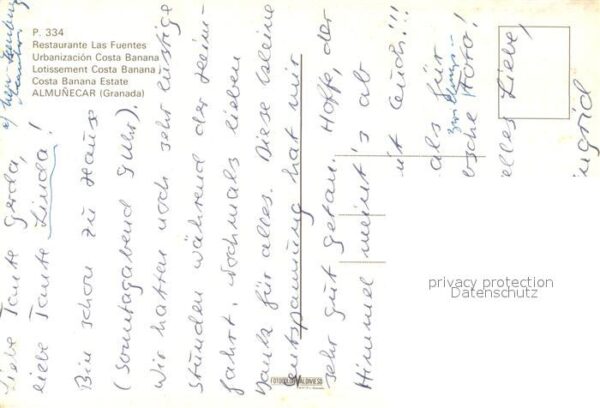 P. 334
Restaurante Las Fuentes
Urbanización Costa Banana
Lotissement Costa Banana
Costa Banana Estate
ALMUÑECAR (Granada)
Liebe Tante Gerda,
liebe Tante Linda!
Bin schon zu Hause
(Sonntagabend 9 Uhr).
Wir hatten noch sehr lustige
Stunden während der Heim-
fahrt. Nochmals lieben
Dank für alles. Diese kleine
Entspannung hat mir
sehr gut getan. Hoffe, der
Himmel meint's ab
mit Euch!!!
als für
Foto!
Alles Liebe,
Ingrid
FOTOCOLOR VALDIVIESO
privacy protection
Datenschutz